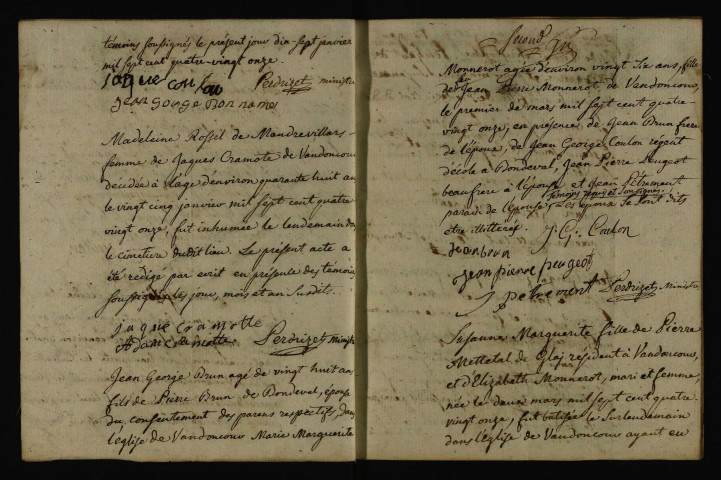 témoins soussignés le présent jour dix-sept janvier
mil sept cent quatre-vingt onze.
jaque coulon Perdrizet ministre
jean george bonname
Madeleine Rossel de Mandrevillars
femme de Jaques Cramote de Vandoncour
decedée à l'age d'environ quarante huit an
le vingt cinq janvier mil sept cent quatre
vingt onze, fut inhumée le lendemain dans
le cimetiere dudit lieu. Le présent acte a
été rédigé par ecrit en présence des témoins
soussignés les jour, mois et an susdits.
jaque cramotte
Adam cramotte Perdrizet ministre
Jean George Brun agé de vingt huit ans
fils de Pierre Brun de Bondeval, épousa
du consentement des parens respectifs, dans
l'église de Vandoncour Marie Marguerite
Second
Monnerot agée d'environ vingt six ans, fille
de Jean Pierre Monnerot de Vandoncour,
le premier de mars mil sept cent quatre-
vingt onze, en présence de Jean Brun frere
de l'époux, de Jean George Coulon régent
d'école à Bondeval, Jean Pierre Peugeot
beaufrere à l'épouse et Jean Petrement
parain de l'épouse témoins requis et soussignés. Les époux se sont dits
être illitterés. J. G. Coulon
jean brun
jean pierre peugeot
J petrement Perdrizet, Ministre
Susanne Marguerite fille de Pierre
Mettetal de Glay résident à Vandoncour,
et d'Elizabeth Monnerot, mari et femme,
née le deux mars mil sept cent quatre-
vingt onze, fut batisée le surlendemain
dans l'église de Vandoncour ayant eu